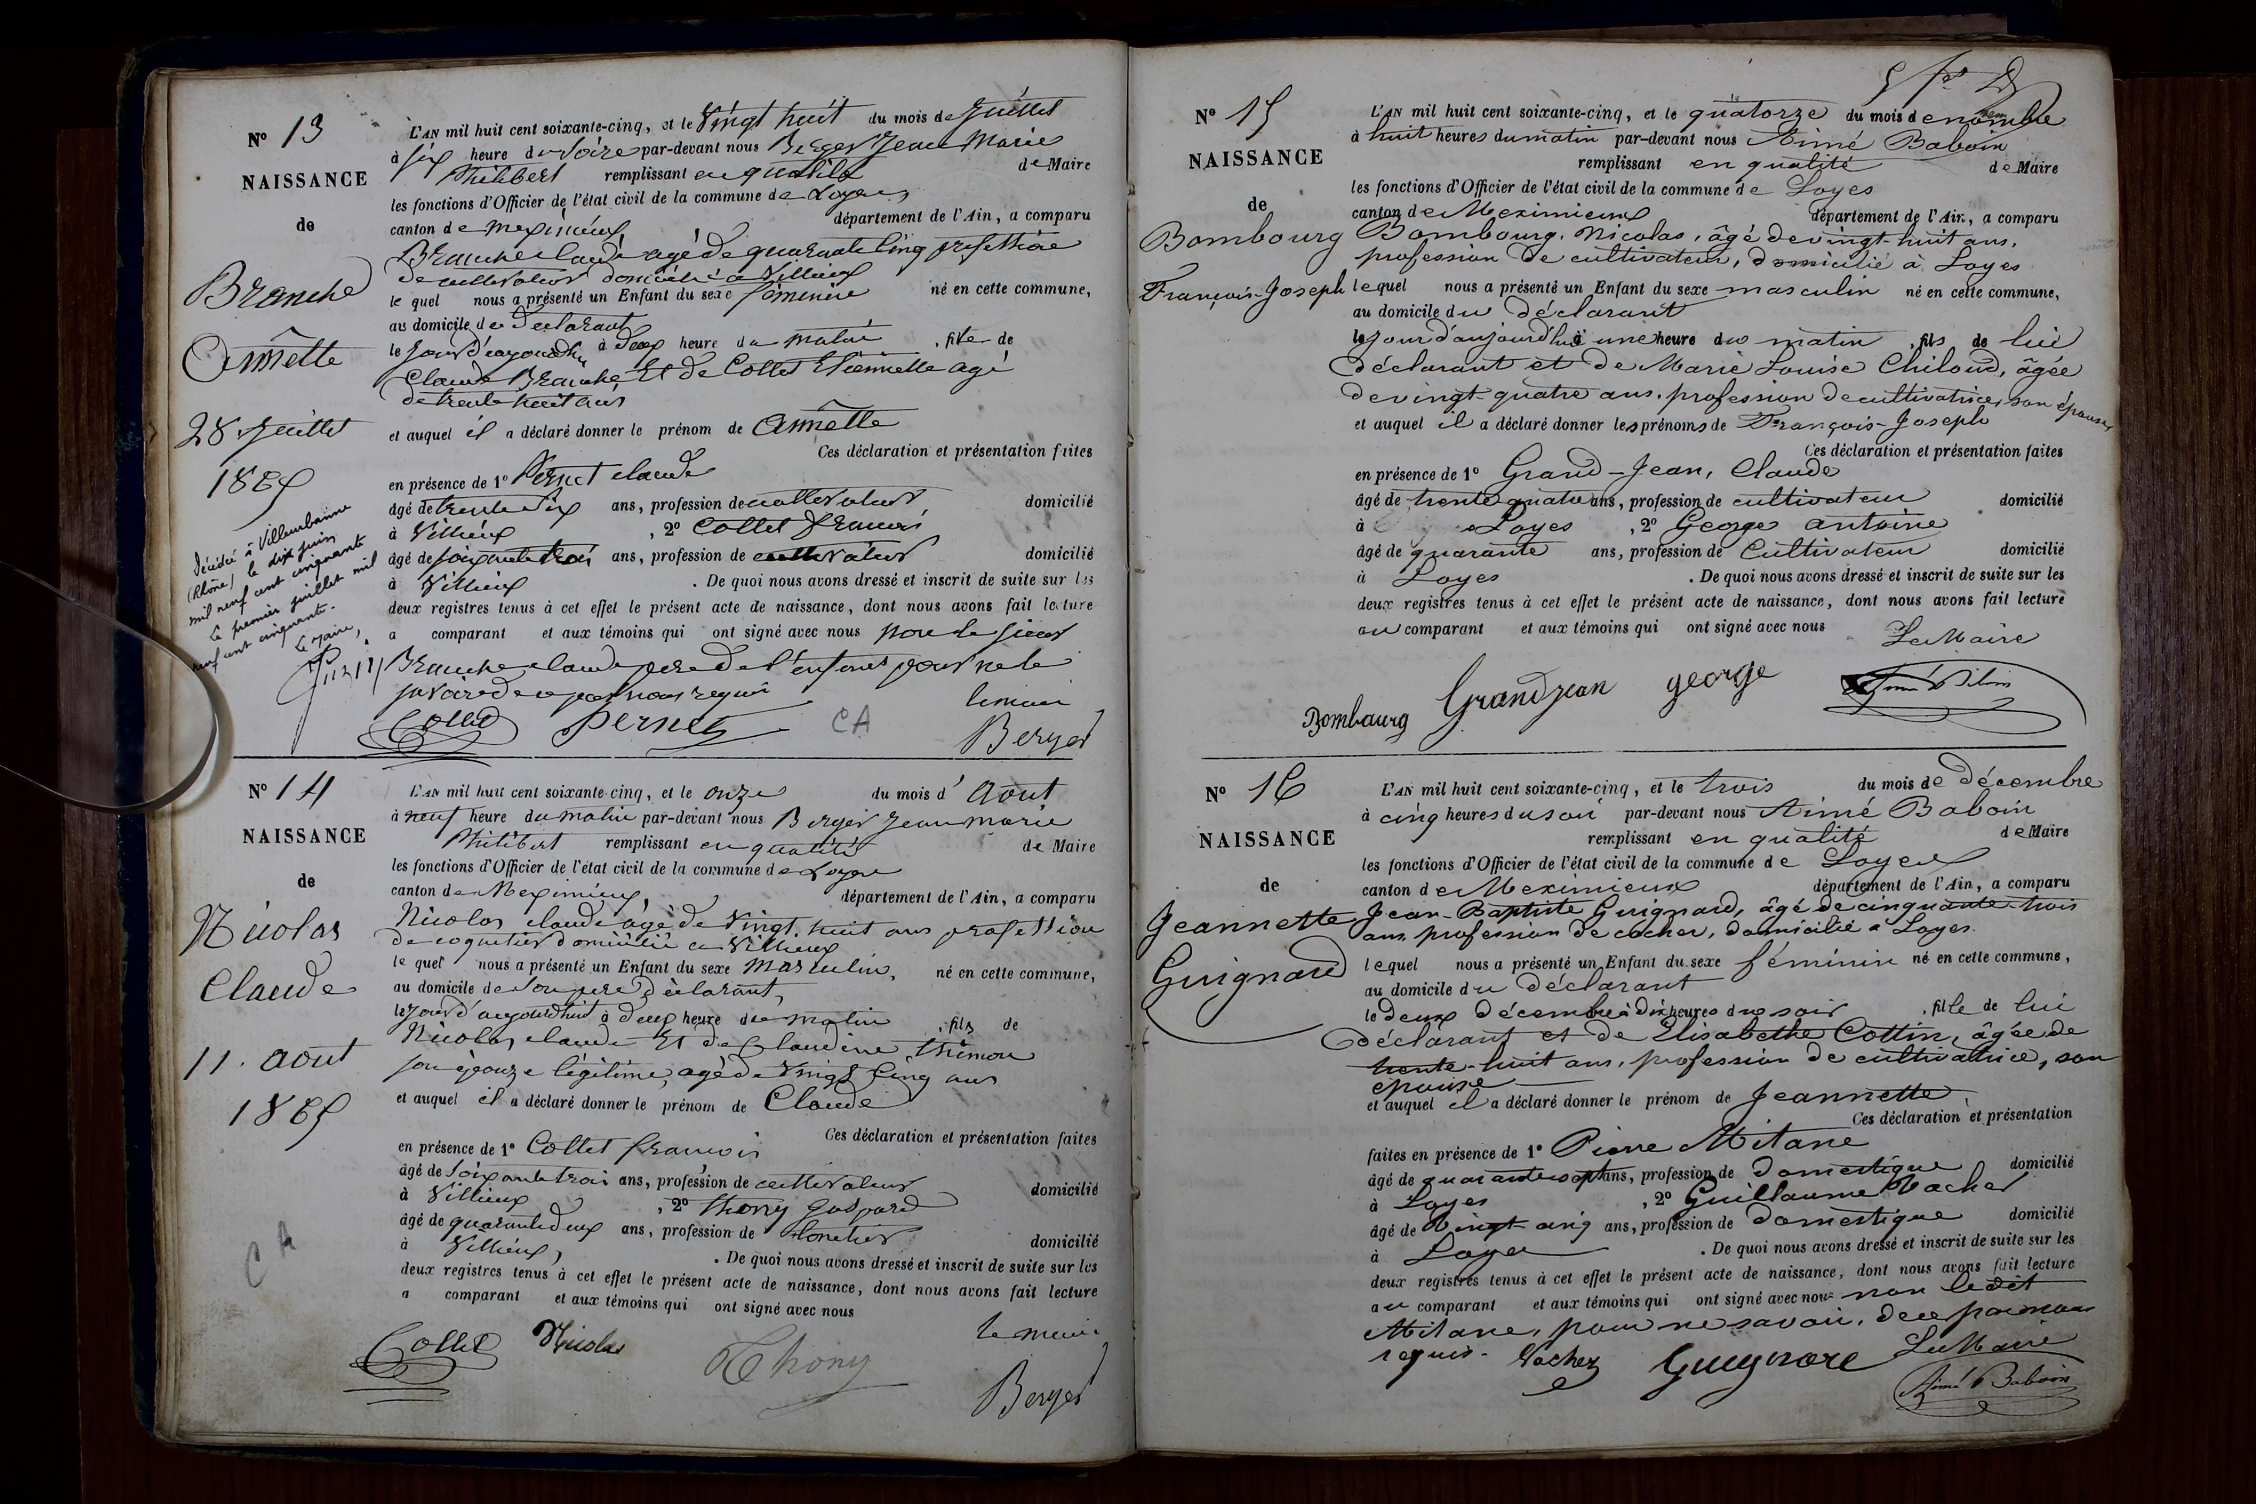 N° 13
NAISSANCE
de
Branche
Annette
28 Juillet
1865
Décédée à Villeurbanne
(Rhône) le dix juin
mil neuf cent cinquante
Le premier juillet mil
neuf cent cinquante.
Le Maire,
L'AN mil huit cent soixante-cinq, et le Vingt huit du mois de Juillet
à Six heure du Soire par-devant nous Berger Jean Marie
Philibert remplissant en qualité de Maire
les fonctions d'Officier de l'état civil de la commune de Loyes
canton de Meximieux département de l'Ain, a comparu
Branche claude agé de quarante Cinq profession
de cultivateur domicilié à Villieux
le quel nous a présenté un Enfant du sexe féminin né en cette commune,
au domicile de declarant
le Jour d'aujourdhui à deux heure du matin , fille de
Claude Branche Et de Collet Etiennette agé
de trente huit ans
et auquel il a déclaré donner le prénom de Annette
Ces déclaration et présentation faites
en présence de 1° Pernet claude
âgé de trente Six ans, profession de cultivateur domicilié
à Villieux , 2° Collet francois
âgé de soixante trois ans, profession de cultivateur domicilié
à Villieux . De quoi nous avons dressé et inscrit de suite sur les
deux registres tenus à cet effet le présent acte de naissance, dont nous avons fait lecture
a comparant et aux témoins qui ont signé avec nous non le sieur
Branche claude pere de l'enfant pour ne le
savoire de ce par nous requi
Collet Pernet CA le maire
Berger
N° 14
NAISSANCE
de
Nicolas
Claude
11. aout
1865
CA
L'AN mil huit cent soixante-cinq, et le onze du mois d' Aout
à neuf heure du matin par-devant nous Berger Jean marie
Philibert remplissant en qualité de Maire
les fonctions d'Officier de l'état civil de la commune de Loyes
canton de Meximieux département de l'Ain, a comparu
Nicolas claude agé de Vingt huit ans profession
de coquetier domicilié a Villieux
le quel nous a présenté un Enfant du sexe masculin, né en cette commune,
au domicile de son pere déclarant,
le jour d'aujourdhuit à deux heure du matin , fils de
Nicolas claude Et de Claudine
son épouze légitime, agé de Vingt Cinq ans
et auquel il a déclaré donner le prénom de Claude
Ces déclaration et présentation faites
en présence de 1° Collet francois
âgé de soixante trois ans, profession de cultivateur domicilié
à Villieux , 2° thony Gaspard
âgé de quarante deux ans, profession de domicilié
à Villieux, . De quoi nous avons dressé et inscrit de suite sur les
deux registres tenus à cet effet le présent acte de naissance, dont nous avons fait lecture
a comparant et aux témoins qui ont signé avec nous
Collet Nicolas Thony le maire
Berger
N° 15
NAISSANCE
de
Bombourg
François-Joseph
L'AN mil huit cent soixante-cinq, et le quatorze du mois de novembre
à huit heures du matin par-devant nous Aimé Baboin
remplissant en qualité de Maire
les fonctions d'Officier de l'état civil de la commune de Loyes
canton de Meximieux département de l'Ain, a comparu
Bombourg, Nicolas, âgé de vingt-huit ans,
profession de cultivateur, domicilié à Loyes
lequel nous a présenté un Enfant du sexe masculin né en cette commune,
au domicile du déclarant
le jour d'aujourd'hui à une heure du matin , fils de lui
déclarant et de Marie Louise Chiloud, âgée
de vingt-quatre ans, profession de cultivatrice, son épouse
et auquel il a déclaré donner les prénoms de François-Joseph
Ces déclaration et présentation faites
en présence de 1° Grand-Jean, Claude
âgé de trente quatre ans, profession de cultivateur domicilié
à Loyes , 2° George antoine
âgé de quarante ans, profession de Cultivateur domicilié
à Loyes . De quoi nous avons dressé et inscrit de suite sur les
deux registres tenus à cet effet le présent acte de naissance, dont nous avons fait lecture
au comparant et aux témoins qui ont signé avec nous
Le Maire
Bombourg Grandjean george
N° 16
NAISSANCE
de
Jeannette
Guignard
L'AN mil huit cent soixante-cinq, et le trois du mois de décembre
à cinq heures du soir par-devant nous Aimé Baboin
remplissant en qualité de Maire
les fonctions d'Officier de l'état civil de la commune de Loyes
canton de Meximieux département de l'Ain, a comparu
Jean-Baptiste Guignard, âgé de cinquante-trois
ans, profession de cocher, domicilié à Loyes
lequel nous a présenté un Enfant du sexe féminin né en cette commune,
au domicile du déclarant
le deux décembre à dix heures du soir , fille de lui
déclarant et de Elisabethe Cottin, âgée de
trente-huit ans, profession de cultivatrice, son
épouse
et auquel il a déclaré donner le prénom de Jeannette
Ces déclaration et présentation
faites en présence de 1° Pierre Mitane
âgé de quarante sept ans, profession de domestique domicilié
à Loyes , 2° Guillaume Vacher
âgé de vingt-cinq ans, profession de domestique domicilié
à Loyes . De quoi nous avons dressé et inscrit de suite sur les
deux registres tenus à cet effet le présent acte de naissance, dont nous avons fait lecture
au comparant et aux témoins qui ont signé avec nous non le dit
Mitane, pour ne savoir, de ce par nous
requis. Vacher Guignard Le Maire
Aimé Baboin